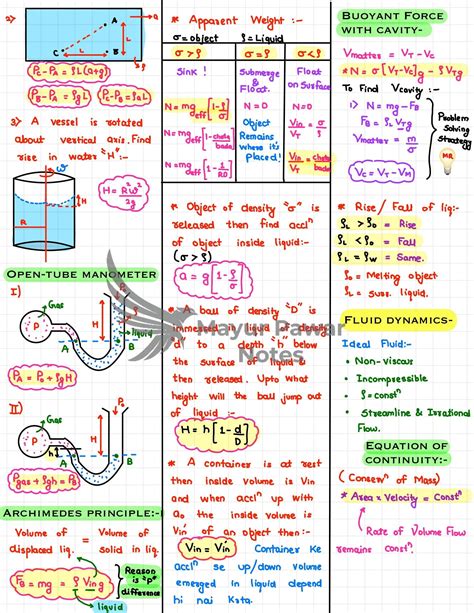 2)
A
L
C
L
B
a
ρ
P_C - P_A = ρL(a+g)
P_B - P_A = ρgL
P_C - P_B = ρaL
3) A vessel is rotated
about vertical axis. Find
rise in water "H" :-
ω
H
R
H = R²ω²/2g
OPEN-TUBE MANOMETER
I)
Gas
P
P_o
H
liquid
A
B
P_A = P_o + ρgH
II)
Gas
P
P_o
H
h
A
B
P_gas + ρgh = P_B
ARCHIMEDES PRINCIPLE:-
Volume of displaced liq. = Volume of solid in liq.
F_B = mg = ρ V_in g
liquid
Reason
is "ρ"
difference
* Apparent Weight :-
σ = object ρ = Liquid
σ > ρ
σ = ρ
σ < ρ
Sink !
N = mg_eff [1 - ρ/σ]
N = mg_eff [1 - chota/bada]
N = mg_eff [1 - RD]
Submerge
& Float.
N = 0
Object
Remains
where it's
placed!
Float
on Surface
N = 0
V_in/V_T = σ/ρ
V_in/V_T = chota/bada
* Object of density "σ" is
released then find accl^n
of object inside liquid:-
(σ > ρ)
a = g [1 - ρ/σ]
* A ball of density "D" is
immersed in liquid of density
d to a depth "h" below
the surface of liquid &
then released. Upto what
height will the ball jump out
of liquid :-
H = h [1 - d/D]
* A container is at rest
then inside volume is Vin
and when accl^n up with
a_o the inside volume is
Vin' of an object then:-
Vin = Vin'
Container Ke
accl^n se up/down volume
emerged in liquid depend
hi nai Karta.
BUOYANT FORCE
WITH CAVITY-
V_matter = V_T - V_C
* N = σ[V_T - V_C]g - ρV_T g
To Find V_cavity :-
1) N = mg - F_B
F_B = ρ_L V_T g
V_matter = m/σ
V_C = V_T - V_M
Problem
Solving
Strategy
MR
* Rise / Fall of liq:-
ρ_L > ρ_O = Rise
ρ_L < ρ_O = Fall
ρ_L = ρ_W = Same.
ρ_O = Melting object
ρ_L = Surr. liquid.
FLUID DYNAMICS-
Ideal Fluid:-
• Non-viscous
• Incompressible
• ρ = const^n
• Streamline & Irrational
Flow.
EQUATION OF
CONTINUITY:-
( Conser^n of Mass)
* Area × Velocity = Const^n
Rate of Volume Flow
remains const^n.
Mayur Pawar
Notes